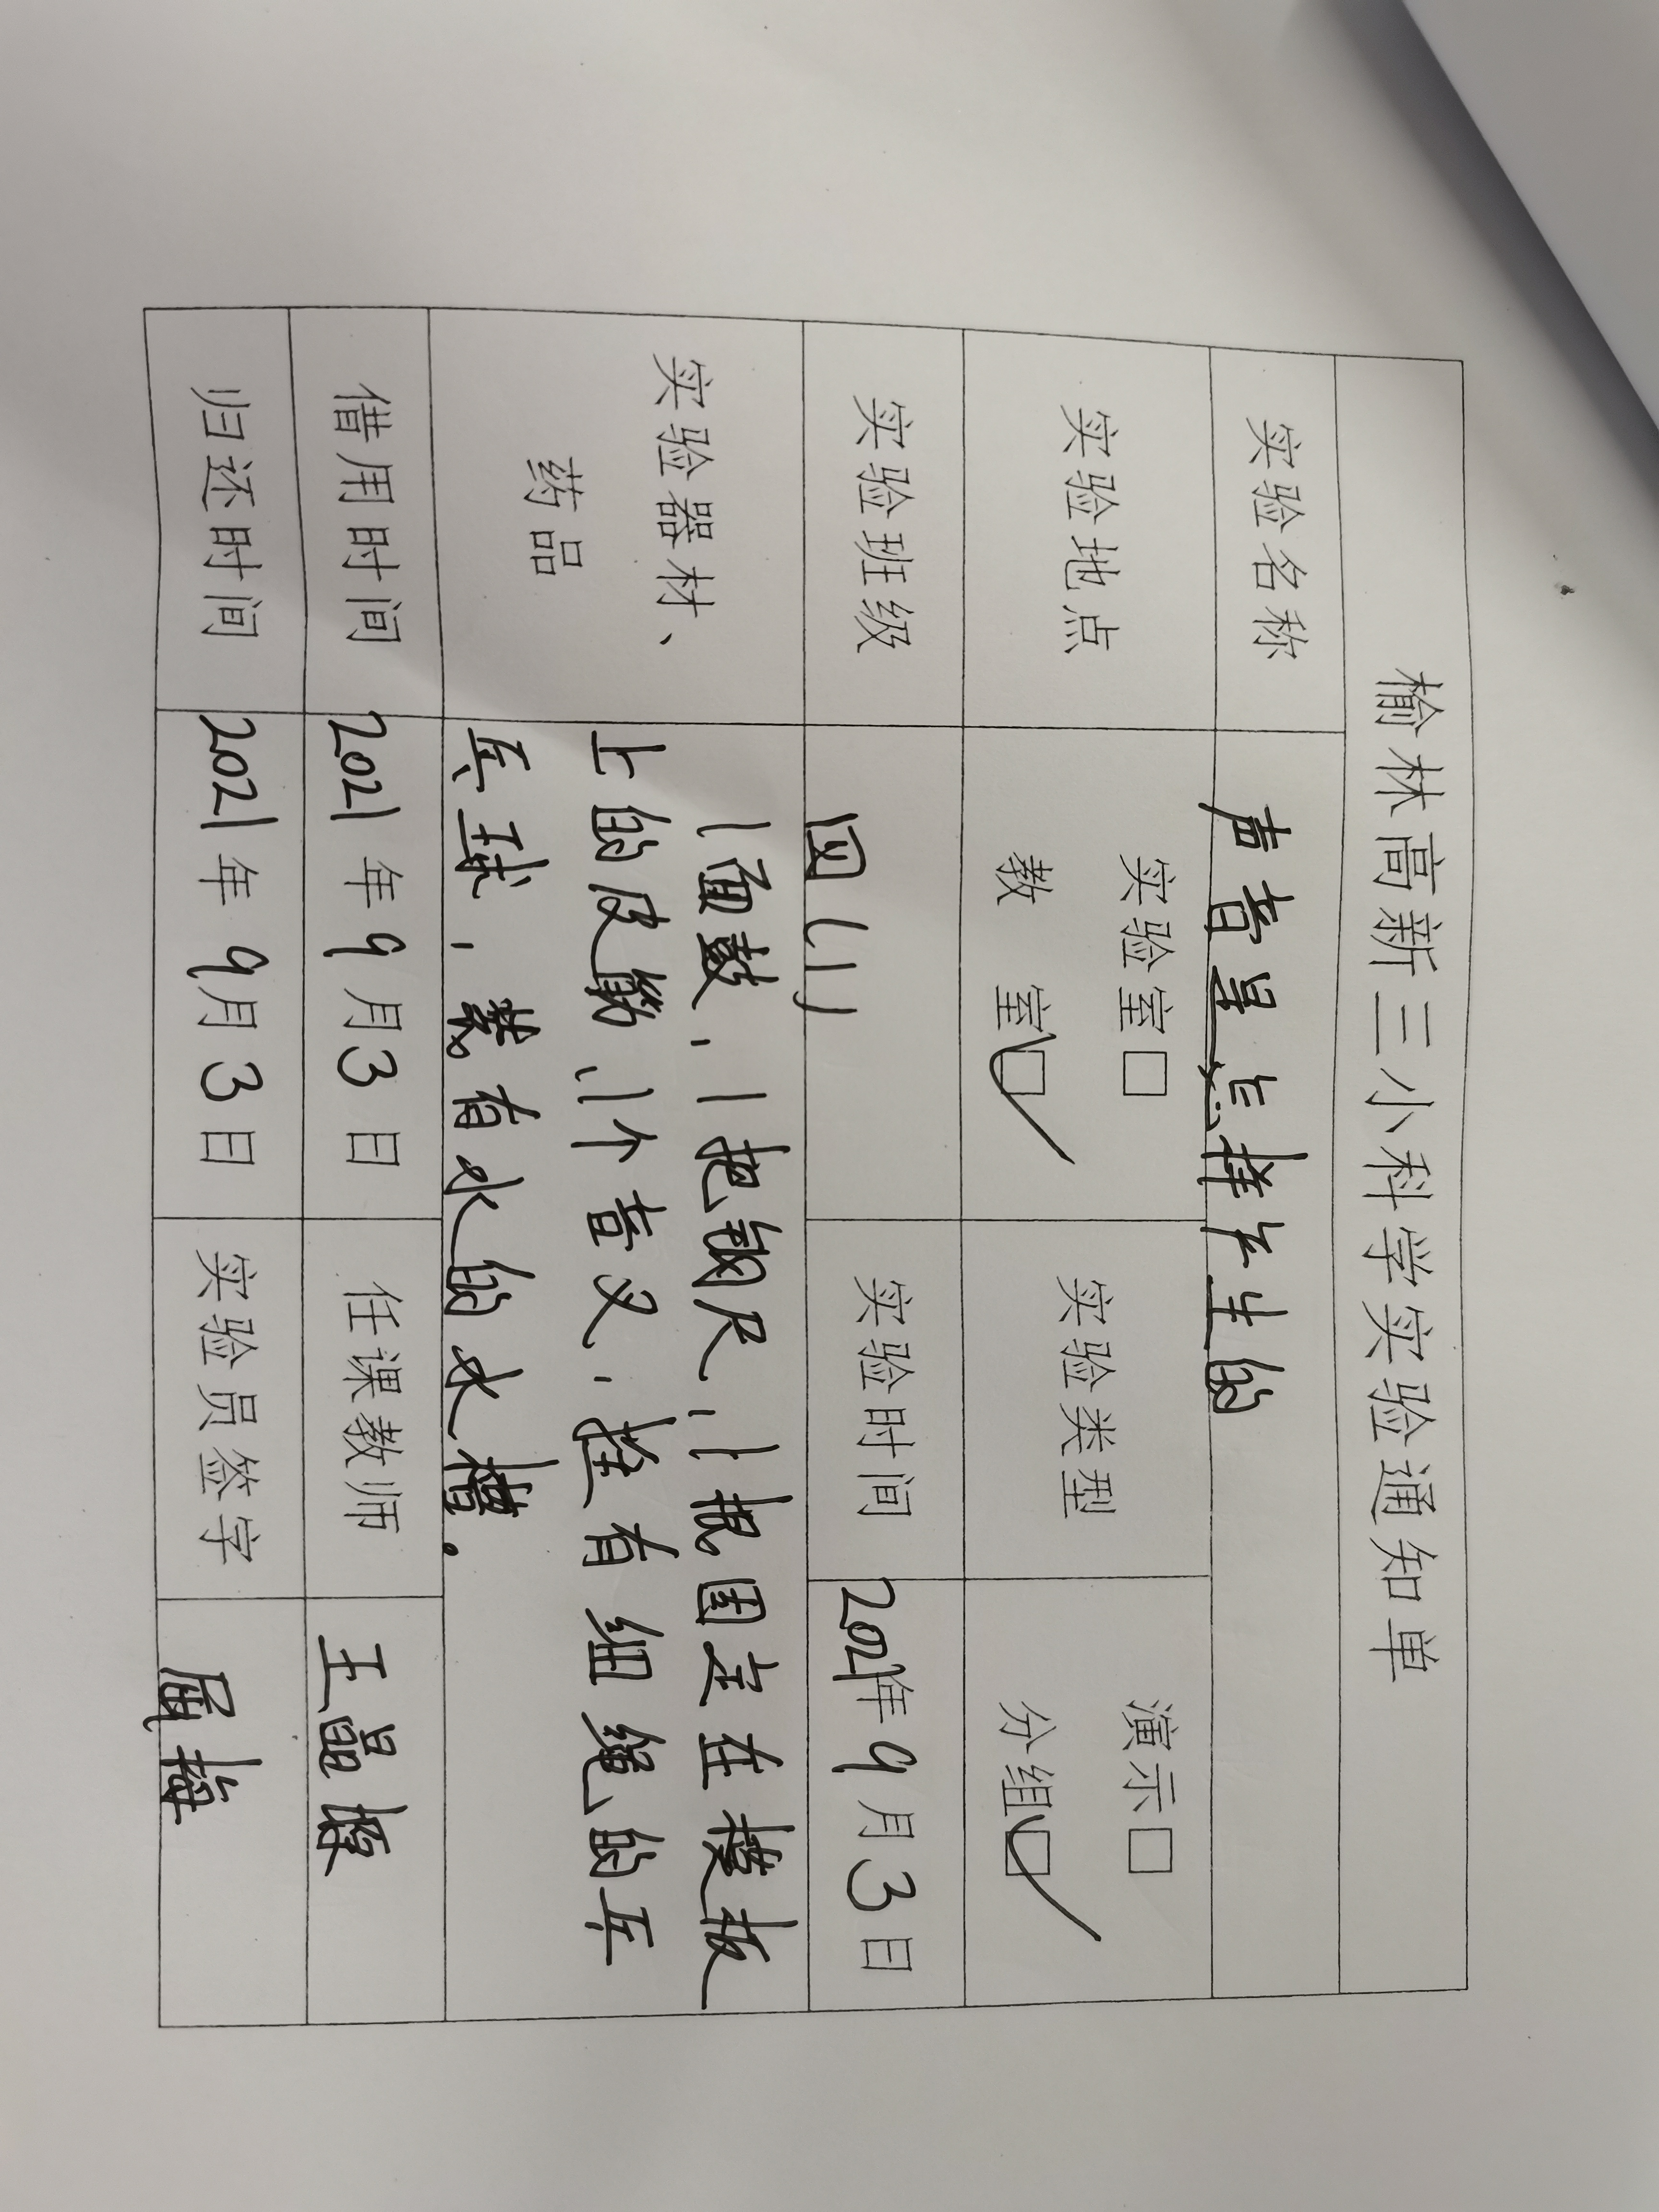 榆林高新三小科学实验通知单
实验名称 声音是怎样产生的
实验地点 实验室□ 教 室☑ 实验类型 演示□ 分组☑
实验班级 四(1) 实验时间 2021年9月3日
实验器材、药品
1面鼓,1把钢尺,1根固定在模板
上的皮筋、1个音叉,拴有细绳的乒
乓球,装有水的水槽。
借用时间 2021年9月3日 任课教师 王晶
归还时间 2021年9月3日 实验员签字 屈梅